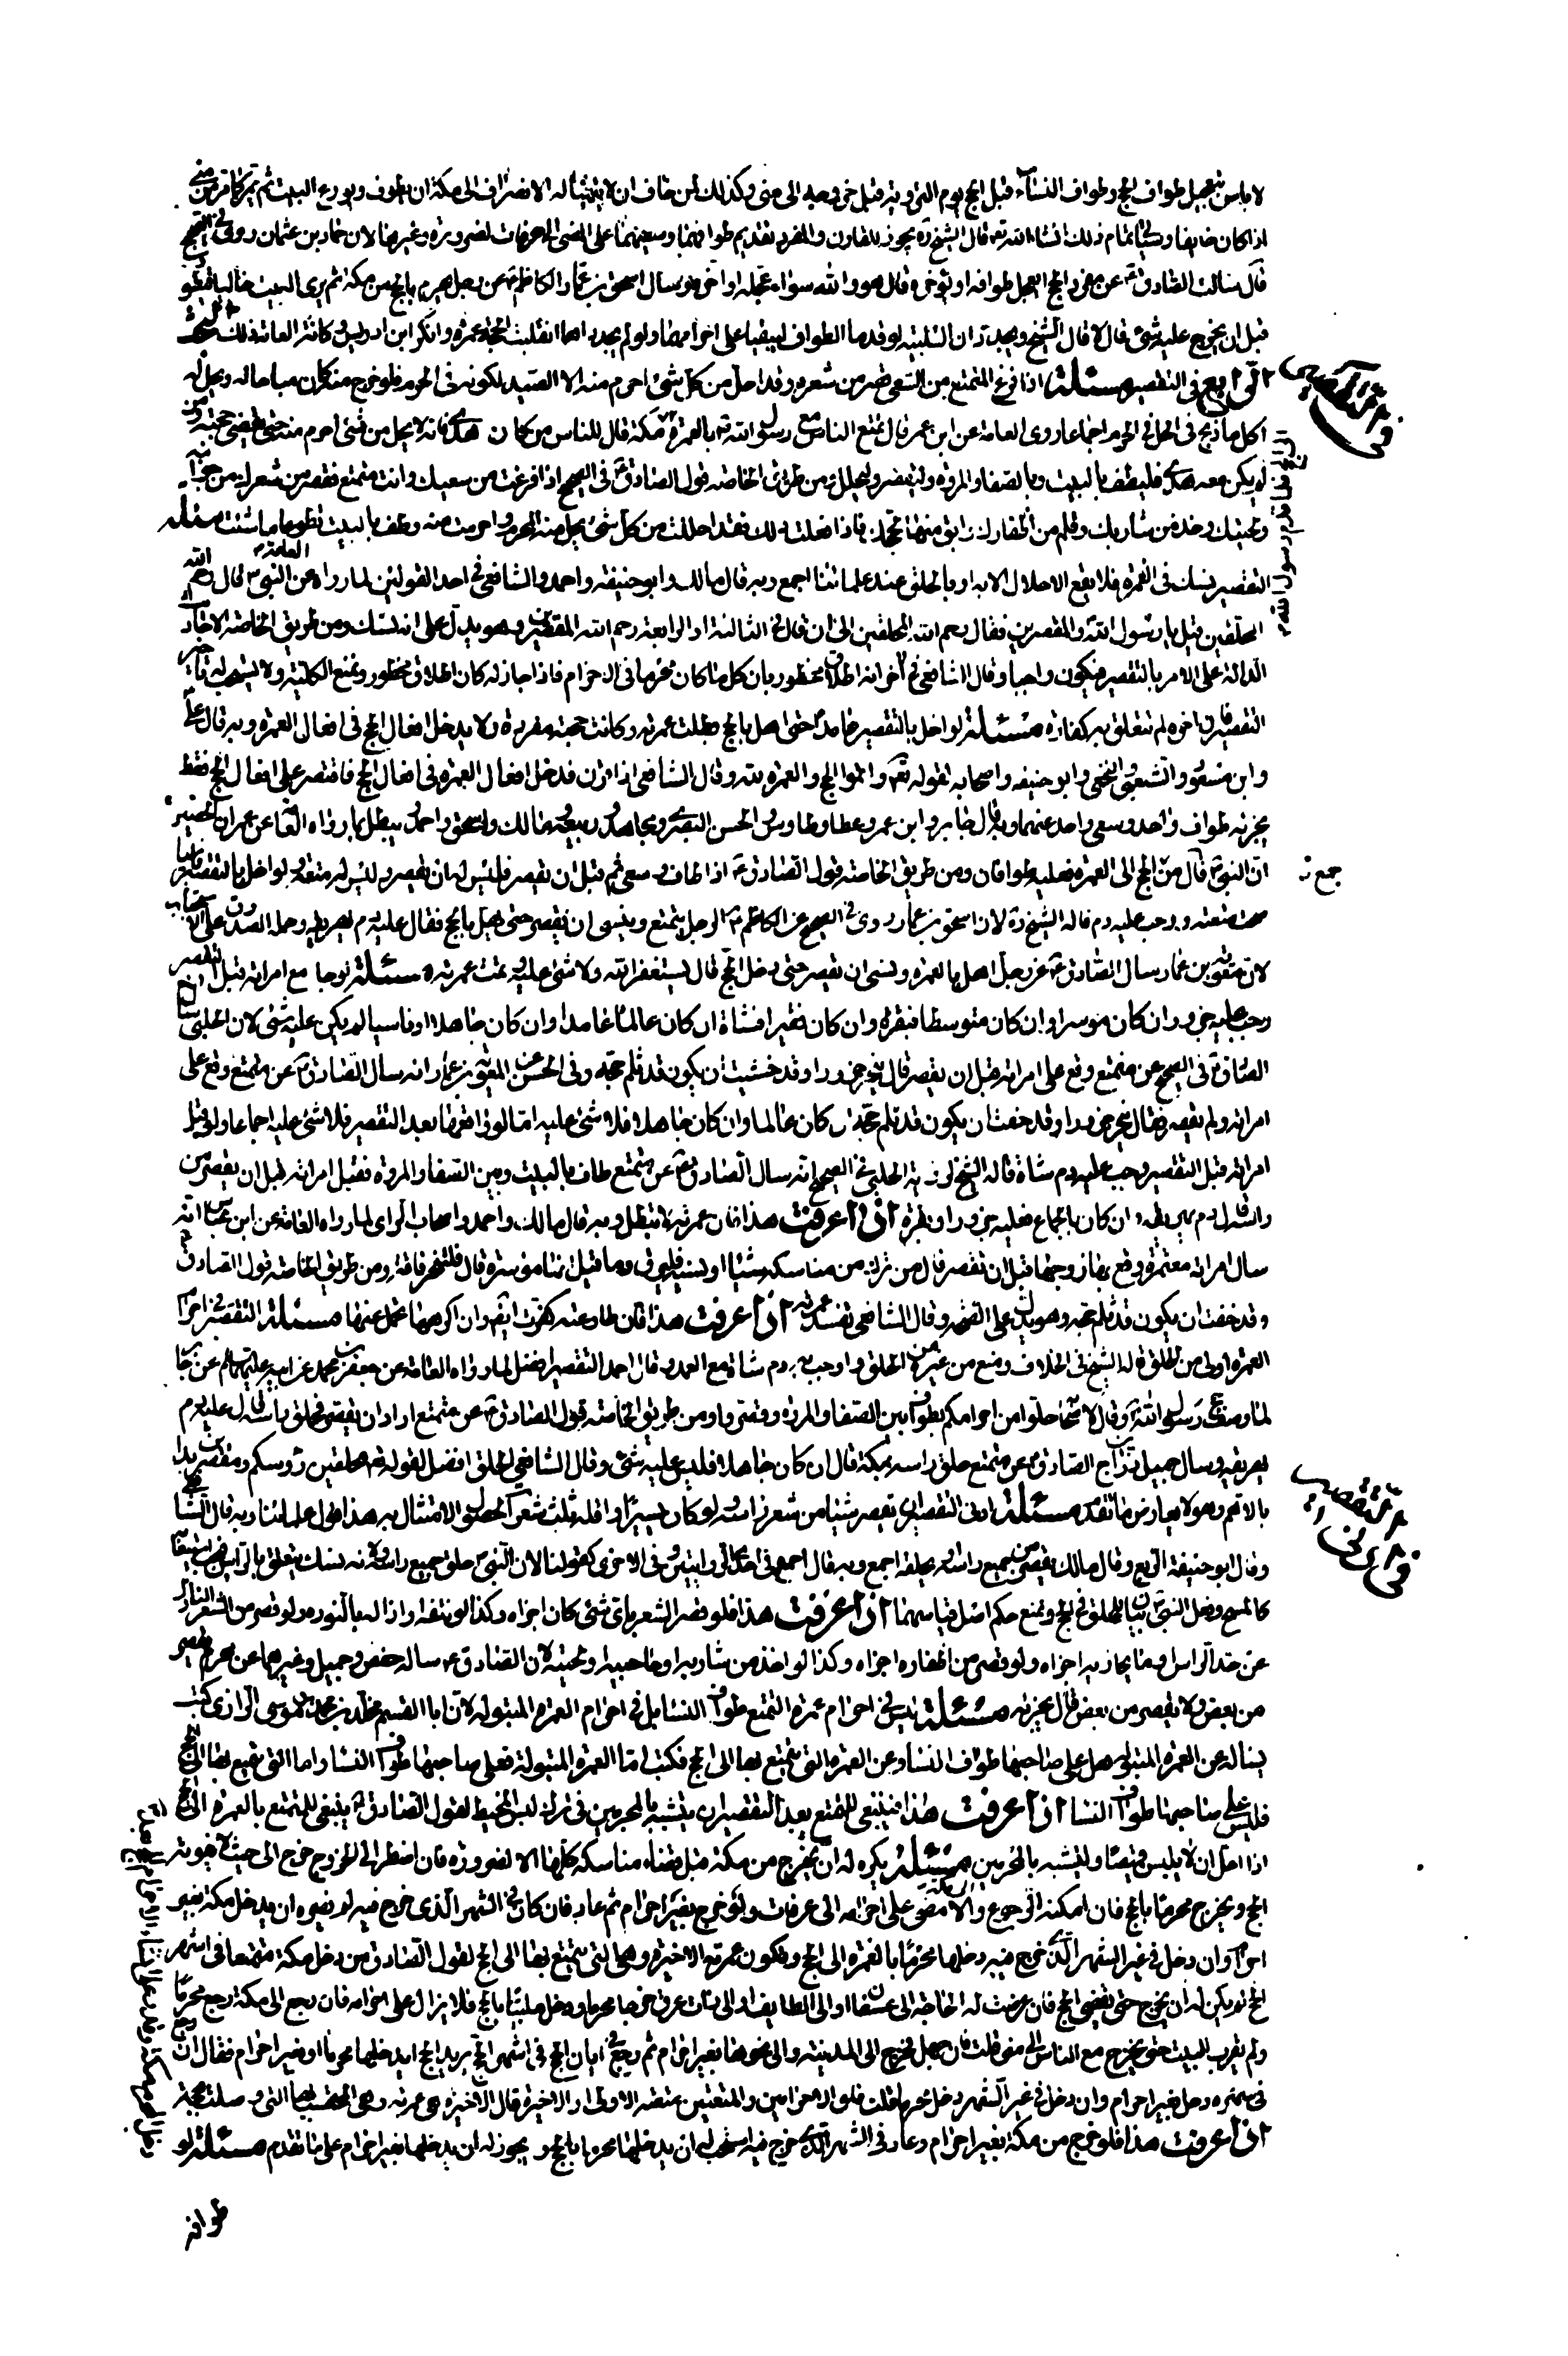 لا باس بتعجيل طواف الحج وطواف النساء قبل الحج يوم التروية قبل خروجه الى منى وكذلك لمن خاف ان لا يتهيأ له الانصراف الى مكة ان يطوف ويودع البيت ثم يمر كما هو من منى
اذا كان خايفا وسياتى تمام ذلك انشاء الله تعالى قال الشيخ ره يجوز للقارن والمفرد تقديم طوافهما وسعيهما على المضى الى عرفات لضرورة وغيرها لان حماد بن عثمان روى فى الصحيح
قال سالت الصادق ع عن مفرد الحج ايعجل طوافه او يؤخره قال هو والله سواء عجله او اخره وسال اسحق بن عمار الكاظم ع عن رجل يحرم بالحج من مكة ثم يرى البيت خاليا فيطوف
قبل ان يخرج عليه شئ قال لا قال الشيخ ويجددان التلبية لو قدما الطواف ليبقيا على احرامهما ولو لم يجدداها انقلبت الحجة عمرة وانكر ابن ادريس وكافة العامة ذلك
الرابع فى التقصير مسئلة اذا فرغ المتمتع من السعى قصر من شعره وقد احل من كل شئ احرم منه الا الصيد لكونه فى الحرم فلو خرج منه كان مباحا له ويحل له
اكل ما ذبح فى الحل فى الحرم اجماعا روى العامة عن ابن عمر قال تمتع الناس مع رسول الله ص بالعمرة مكة قال للناس من كان معه هدى فانه لا يحل من شئ احرم منه حتى يقضى حجته ومن
لم يكن معه هدى فليطف بالبيت وبالصفا والمروة وليقصر وليحلل ومن طريق الخاصة قول الصادق ع فى الصحيح اذا فرغت من سعيك وانت متمتع فقصر من شعرك من جوانبه
ولحيتك وخذ من شاربك وقلم من اظفارك وابق منها لحجك فاذا فعلت ذلك فقد احللت من كل شئ يحل منه المحرم واحرمت منه وطف بالبيت تطوعا ما شئت مسئلة
التقصير نسك فى العمرة فلا يقع الاحلال الا به او بالحلق عند علمائنا اجمع وبه قال مالك وابو حنيفة واحمد والشافعى فى احد القولين لما رواه العامة عن النبى ص قال رحم الله
المحلقين قيل يا رسول الله والمقصرين فقال رحم الله المحلقين الى ان قال فى الثالثة او الرابعة رحم الله المقصرين وهو يدل على انه نسك ومن طريق الخاصة الاخبار
الدالة على الامر بالتقصير فيكون واجبا وقال الشافعى فى الاخر انه اطلاق محظور بان كل ما كان محرما فى الاحرام فاذا جاز له كان اطلاق محظور ونمنع الكلية ولا يستحب له تاخير
التقصير فان اخره لم تتعلق به كفارة مسئلة لو اخل بالتقصير عامدا حتى اهل بالحج بطلت عمرته وكانت حجته مفردة ولا يدخل افعال الحج فى افعال العمرة وبه قال على ع
وابن مسعود والشعبى والنخعى وابو حنيفة واصحابه لقوله تعالى واتموا الحج والعمرة لله وقال الشافعى اذا قرن تدخل افعال العمرة فى افعال الحج فاقتصر على افعال الحج فقط
يجزئه طواف واحد وسعى واحد عنهما وبه قال جابر وابن عمر وعطا وطاوس والحسن البصرى ومجاهد وربيعة ومالك واسحق واحمد يبطل بما رواه العامة عن عمران الحصين
ان النبى ص قال من جمع الحج الى العمرة فعليه طوافان ومن طريق الخاصة قول الصادق ع اذا طاف وسعى ثم لبى قبل ان يقصر فليس له ان يقصر وليس له متعة ولو اخل بالتقصير ناسيا
صحت متعته ووجب عليه دم قاله الشيخ ره لان اسحق بن عمار روى فى الصحيح عن الكاظم ع الرجل يتمتع وينسى ان يقصر حتى يهل بالحج فقال عليه دم يهريقه وحمله الصدوق على الاستحباب
لان معوية بن عمار سال الصادق ع عن رجل اهل بالعمرة ونسى ان يقصر حتى دخل الحج قال يستغفر الله ولا شئ عليه وتمت عمرته مسئلة لو جامع امراته قبل التقصير
وجب عليه جزور ان كان موسرا وان كان متوسطا فبقرة وان كان فقيرا فشاة ان كان عالما عامدا وان كان جاهلا او ناسيا لم يكن عليه شئ لان الحلبى سال
الصادق ع فى الصحيح عن متمتع وقع على امراته قبل ان يقصر قال ينحر جزورا وقد خشيت ان يكون قد ثلم حجه وفى الحسن عن معوية بن عمار انه سال الصادق ع عن متمتع وقع على
امراته ولم يقصر فقال ينحر جزورا وقد خفت ان يكون قد ثلم حجه ان كان عالما وان كان جاهلا فلا شئ عليه اما لو واقعها بعد التقصير فلا شئ عليه اجماعا ولو قبل
امراته قبل التقصير وجب عليه دم شاة قاله الشيخ لرواية الحلبى فى الصحيح انه سال الصادق ع عن متمتع طاف بالبيت وبين الصفا والمروة فقبل امراته قبل ان يقصر من
راسه قال دم يهريقه وان كان الجماع فعليه جزور او بقرة اذا عرفت هذا فان عمرته لا تبطل وبه قال مالك واحمد واصحاب الراى لما رواه العامة عن ابن عباس انه
سال امراته معتمرة وقع بها زوجها قبل ان تقصر قال من ترك من مناسكه شيئا او نسيه فليهرق دما قيل انها موسرة قال فلتنحر ناقة ومن طريق الخاصة قول الصادق ع
وقد خفت ان يكون قد ثلم حجه وهو يدل على الصحة وقال الشافعى تفسد عمرته اذا عرفت هذا فان طاوعته كفرت ايضا وان اكرهها تحمل عنها مسئلة التقصير فى احرام
العمرة اولى من الحلق قاله الشيخ فى الخلاف ومنع من غيره من الحلق واوجب به دم شاة مع العمد وقال احمد التقصير افضل لما رواه العامة عن جعفر بن محمد عن ابيه عليهما السلام عن جابر
لما وصف حج رسول الله ص وقال لاصحابه احلوا من احرامكم بطواف بين الصفا والمروة وقصروا ومن طريق الخاصة قول الصادق ع عن متمتع اراد ان يقصر فحلق راسه قال عليه دم
يهريقه وسال جميل بن دراج الصادق ع عن متمتع حلق راسه بمكة قال ان كان جاهلا فليس عليه شئ وقال الشافعى الحلق افضل لقوله تعالى محلقين رؤسكم ومقصرين بدا
بالاعم وهو لا يعارض ما تقدم مسئلة ادنى التقصير ان يقصر شيئا من شعر راسه ولو كان يسيرا واقله ثلث شعرات لحصول الامتثال به هذا قول علمائنا وبه قال الشافعى
وقال ابو حنيفة الربع وقال مالك يقصر من جميع راسه او يحلقه اجمع وبه قال احمد فى احدى الروايتين وفى الاخرى كقولنا لان النبى ص حلق جميع راسه ولانه نسك يتعلق بالراس فيجب استيعابه
كالمسح وفعل النبى ص بيانا للحلق فى الحج ونمنع حكم اصل قياسهما اذا عرفت هذا فلو قصر الشعر باى شئ كان اجزاه وكذا لو نتفه وازاله بالنورة ولو قصر من الشعر النازل
عن حد الراس وما يحاذيه اجزاه ولو قصر من اظفاره اجزاه وكذا لو اخذ من شاربه او حاجبيه او لحيته لان الصادق ع ساله حفص وجميل وغيرهما عن محرم يقصر
من بعض ولا يقصر من بعض قال يجزئه مسئلة ليس فى احرام عمرة التمتع طواف النساء بل فى احرام العمرة المبتولة لان ابا القسم مخلد بن موسى الرازى كتب
يساله عن العمرة المبتولة هل على صاحبها طواف النساء وعن العمرة التى يتمتع بها الى الحج فكتب اما العمرة المبتولة فعلى صاحبها طواف النساء واما التى يتمتع بها الى الحج
فليس على صاحبها طواف النساء اذا عرفت هذا فينبغى للمتمتع بعد التقصير ان يتشبه بالمحرمين فى ترك لبس المخيط لقول الصادق ع ينبغى للمتمتع بالعمرة الى الحج
اذا احل ان لا يلبس قميصا وليتشبه بالمحرمين مسئلة يكره له ان يخرج من مكة قبل قضاء مناسكه كلها الا لضرورة فان اضطر الى الخروج خرج الى حيث لا يفوته
الحج ويخرج محرما بالحج فان امكنه الرجوع والا مضى على احرامه الى عرفات ولو خرج بغير احرام ثم عاد فان كان فى الشهر الذى خرج فيه لم يضره ان يدخل مكة بغير
احرام وان دخل فى غير الشهر الذى خرج فيه دخلها محرما بالعمرة الى الحج وتكون عمرته الاخيرة وهى التى يتمتع بها الى الحج لقول الصادق ع من دخل مكة متمتعا فى اشهر
الحج لم يكن له ان يخرج حتى يقضى الحج فان عرضت له الحاجة الى عسفان او الى الطايف او الى ذات عرق خرج محرما ودخل ملبيا بالحج فلا يزال على احرامه فان رجع الى مكة رجع محرما
ولم يقرب البيت حتى يخرج مع الناس الى منى قلت فان جهل فخرج الى المدينة والى نحوها بغير احرام ثم رجع فى ابان الحج فى اشهر الحج يريد الحج ايدخلها محرما او بغير احرام فقال ان رجع
فى شهره دخل بغير احرام وان دخل فى غير الشهر دخل محرما قلت فاى الاحرامين والمتعتين متعته الاولى او الاخيرة قال الاخيرة هى عمرته وهى المحتبس بها التى وصلت بحجته
اذا عرفت هذا فلو خرج من مكة بغير احرام وعاد فى الشهر الذى خرج فيه استحب له ان يدخلها محرما بالحج ويجوز له ان يدخلها بغير احرام على ما تقدم مسئلة لو
طوافه